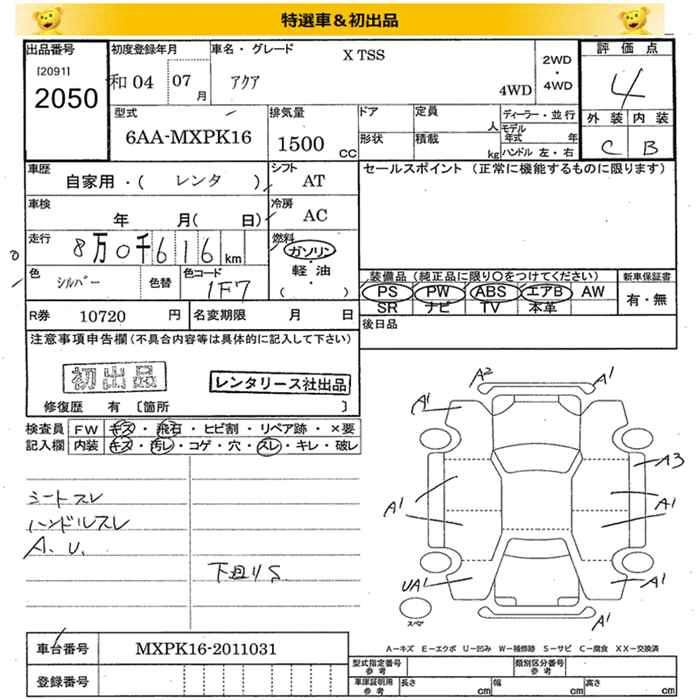 特選車&初出品
出品番号
[2091]
2050
初度登録年月
和04 07月
車名・グレード
X TSS
アクア
4WD
2WD・4WD
評価点
4
外装 内装
C B
型式
6AA-MXPK16
排気量
1500 cc
ドア
形状
定員 人
積載 kg
ディーラー・並行
モデル年式 年
ハンドル 左・右
車歴
自家用・( レンタ )
シフト
AT
セールスポイント (正常に機能するものに限ります)
車検
年 月( 日)
冷房
AC
走行
8万0千616km
燃料
ガソリン・軽油・( )
色
シルバー
色替
色コード
1F7
装備品 (純正品に限り○をつけてください)
新車保証書
PS PW ABS エアB AW
SR ナビ TV 本革
有・無
R券 10720 円
名変期限 月 日
後日品
注意事項申告欄(不具合内容等は具体的に記入して下さい)
初出品
レンタリース社出品
修復歴 有 [箇所 ]
検査員記入欄
FW キズ・飛石・ヒビ割・リペア跡・×要
内装 キズ・汚レ・コゲ・穴・スレ・キレ・破レ
シートスレ
ハンドルスレ
A.U.
下回りS
A2 A1
A1
A3
A1 A1
A1
UA1 A1
A1
スペア
A−キズ E−エクボ U−凹み W−補修跡 S−サビ C−腐食 XX−交換済
車台番号 MXPK16-2011031
登録番号
型式指定番号 参考
類別区分番号 参考
車庫証明用 参考
長さ cm 幅 cm 高さ cm